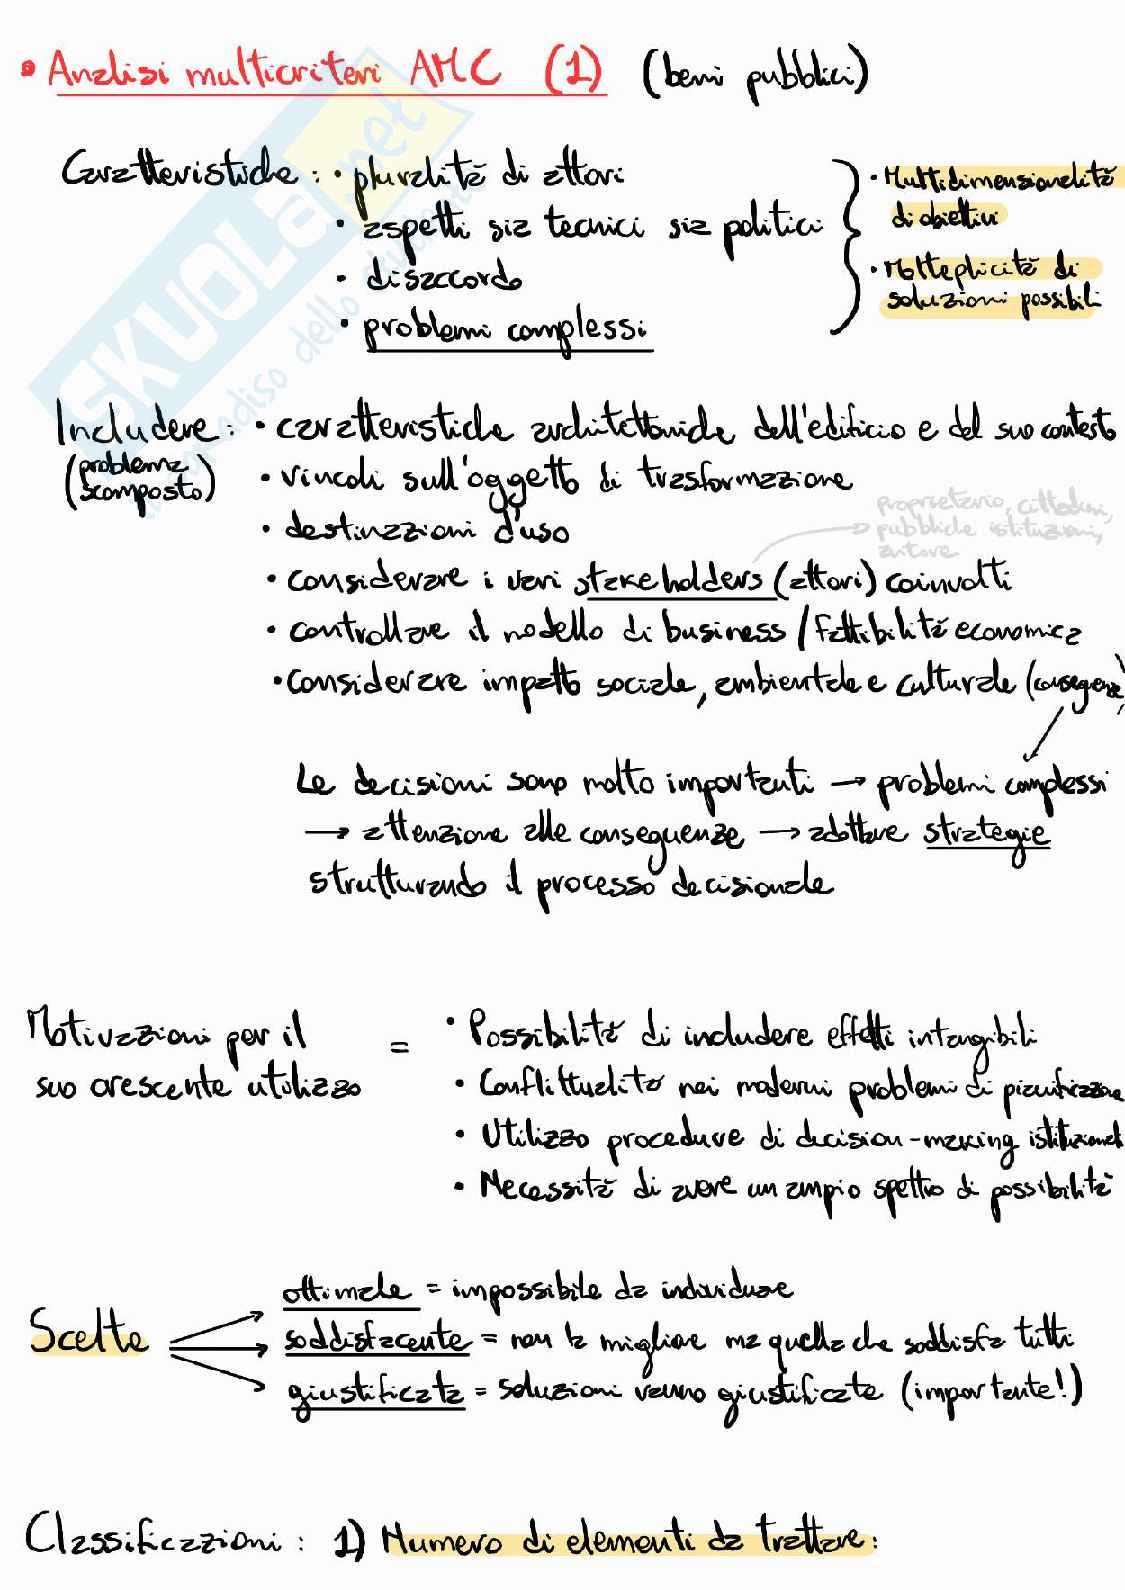 • Analisi multicriteri AMC (1) (beni pubblici)
Caratteristiche: • pluralità di attori
• aspetti sia tecnici sia politici
• disaccordo
• problemi complessi
• Multidimensionalità
di obiettivi
• Molteplicità di
soluzioni possibili
Includere: • caratteristiche architettoniche dell'edificio e del suo contesto
(problema
scomposto)
• vincoli sull'oggetto di trasformazione
• destinazioni d'uso
proprietario, cittadini,
pubbliche istituzioni,
• considerare i vari stakeholders (attori) coinvolti
• controllare il modello di business / fattibilità economica
• considerare impatto sociale, ambientale e culturale (conseguenze)
Le decisioni sono molto importanti → problemi complessi
→ attenzione alle conseguenze → adottare strategie
strutturando il processo decisionale
Motivazioni per il
suo crescente utilizzo
= • Possibilità di includere effetti intangibili
• Conflittualità nei moderni problemi di pianificazione
• Utilizzo procedure di decision-making istituzionali
• Necessità di avere un ampio spettro di possibilità
Scelte
ottimale = impossibile da individuare
soddisfacente = non la migliore ma quella che soddisfa tutti
giustificata = soluzioni vanno giustificate (importante!)
Classificazioni: 1) Numero di elementi da trattare:
SKUOLA.net
dello